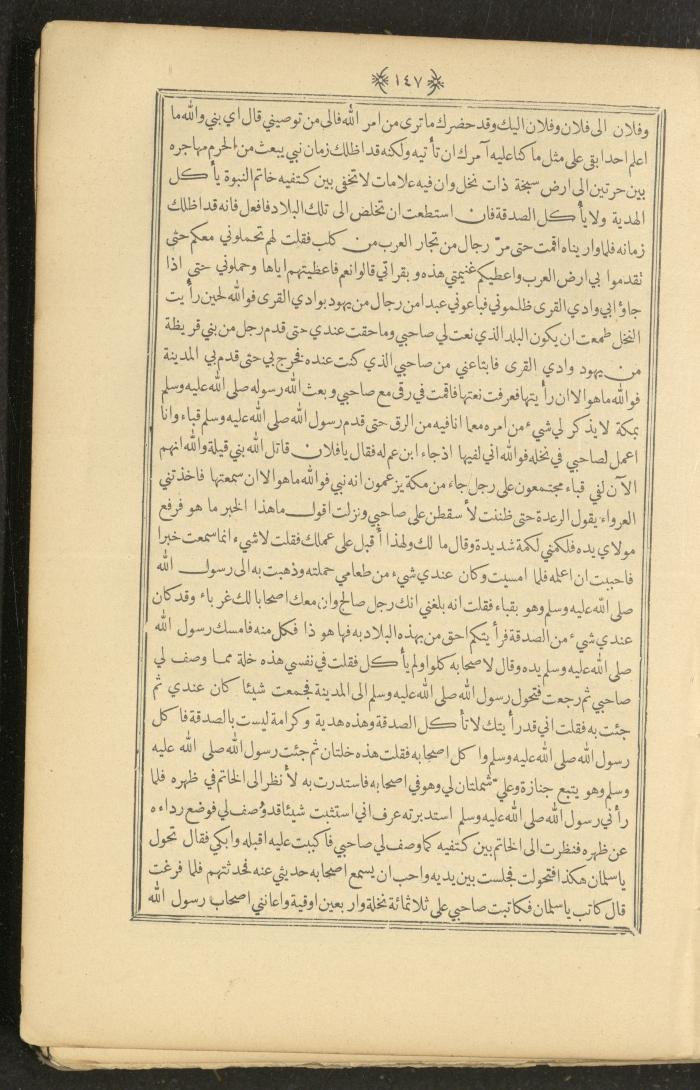 ١٤٧
وفلان الى فلان وفلان اليك وقد حضرك ما ترى من امر الله فالى من توصيني قال اي بني والله ما
اعلم احدا بقي على مثل ما كنا عليه آمرك ان تأتيه ولكنه قد اظلك زمان نبي يبعث من الحرم مهاجره
بين حرتين الى ارض سبخة ذات نخل وان فيه علامات لا تخفى بين كتفيه خاتم النبوة يأكل
الهدية ولا يأكل الصدقة فان استطعت ان تخلص الى تلك البلاد فافعل فانه قد اظلك
زمانه فلما واريناه اقمت حتى مرّ رجال من تجار العرب من كلب فقلت لهم تحملوني معكم حتى
تقدموا بي ارض العرب واعطيكم غنيمتي هذه و بقراتي قالوا نعم فاعظيتهم اياها وحملوني حتى اذا
جاؤا بي وادي القرى ظلموني فباعوني عبدا من رجال من يهود بوادي القرى فوالله لحين رأيت
النخل طمعت ان يكون البلد الذي نعت لي صاحبي وما حقت عندي حتى قدم رجل من بني قريظة
من يهود وادي القرى فابتاعني من صاحبي الذي كنت عنده فخرج بي حتى قدم بي المدينة
فوالله ما هو الا ان رأيتها فعرفت نعتها فاقمت في رقي مع صاحبي و بعث الله رسوله صلى الله عليه وسلم
بمكة لا يذكر لي شيء من امره مع ما انا فيه من الرق حتى قدم رسول الله صلى الله عليه وسلم قباء وانا
اعمل لصاحبي في نخله فوالله اني لفيها اذ جاء ابن عم له فقال يا فلان قاتل الله بني قيلة والله انهم
الآن لفي قباء مجتمعون على رجل جاء من مكة يزعمون انه نبي فوالله ما هو الا ان سمعتها فاخذتني
العرواء يقول الرعدة حتى ظننت لأسقطن على صاحبي ونزلت اقول ما هذا الخبر ما هو فرفع
مولاي يده فلكمني لكمة شديدة وقال ما لك ولهذا أقبل على عملك فقلت لا شيء انما سمعت خبرا
فاحببت ان اعلمه فلما امسيت وكان عندي شيء من طعامي حملته وذهبت به الى رسول الله
صلى الله عليه وسلم وهو بقباء فقلت انه بلغني انك رجل صالح وان معك اصحابا لك غرباء وقد كان
عندي شيء من الصدقة فرأيتكم احق من بهذه البلاد به فها هو ذا فكل منه فامسك رسول الله
صلى الله عليه وسلم يده وقال لاصحابه كلوا ولم يأكل فقلت في نفسي هذه خلة مما وصف لي
صاحبي ثم رجعت فتحول رسول الله صلى الله عليه وسلم الى المدينة فجمعت شيئا كان عندي ثم
جئت به فقلت اني قد رأيتك لا تأكل الصدقة وهذه هدية وكرامة ليست بالصدقة فاكل
رسول الله صلى الله عليه وسلم واكل اصحابه فقلت هذه خلتان ثم جئت رسول الله صلى الله عليه
وسلم وهو يتبع جنازة وعليّ شملتان لي وهو في اصحابه فاستدرت به لأنظر الى الخاتم في ظهره فلما
رأني رسول الله صلى الله عليه وسلم استدبرته عرف اني استثبت شيئا قد وُصف لي فوضع رداءه
عن ظهره فنظرت الى الخاتم بين كتفيه كما وصف لي صاحبي فاكببت عليه اقبله وابكي فقال تحول
يا سلمان هكذا فتحولت فجلست بين يديه واحب ان يسمع اصحابه حديثي عنه فحدثتهم فلما فرغت
قال كاتب يا سلمان فكاتبت صاحبي على ثلاثمائة نخلة واربعين اوقية واعانني اصحاب رسول الله